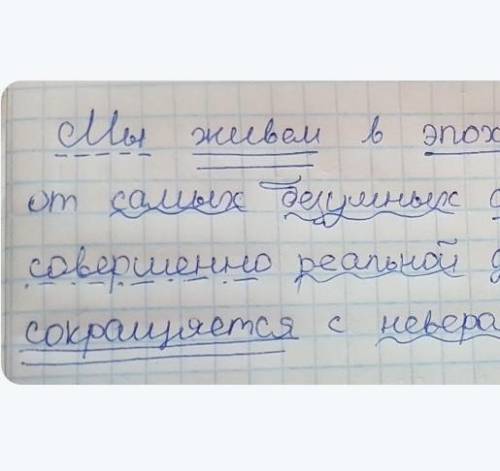 Мы живем в эпох
от самых безумных
совершенно реальной
сокращяется с невера